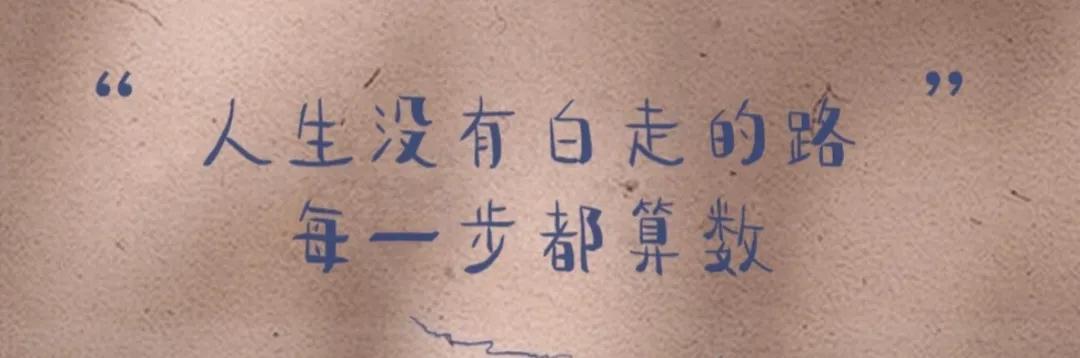 “人生没有白走的路”
每一步都算数